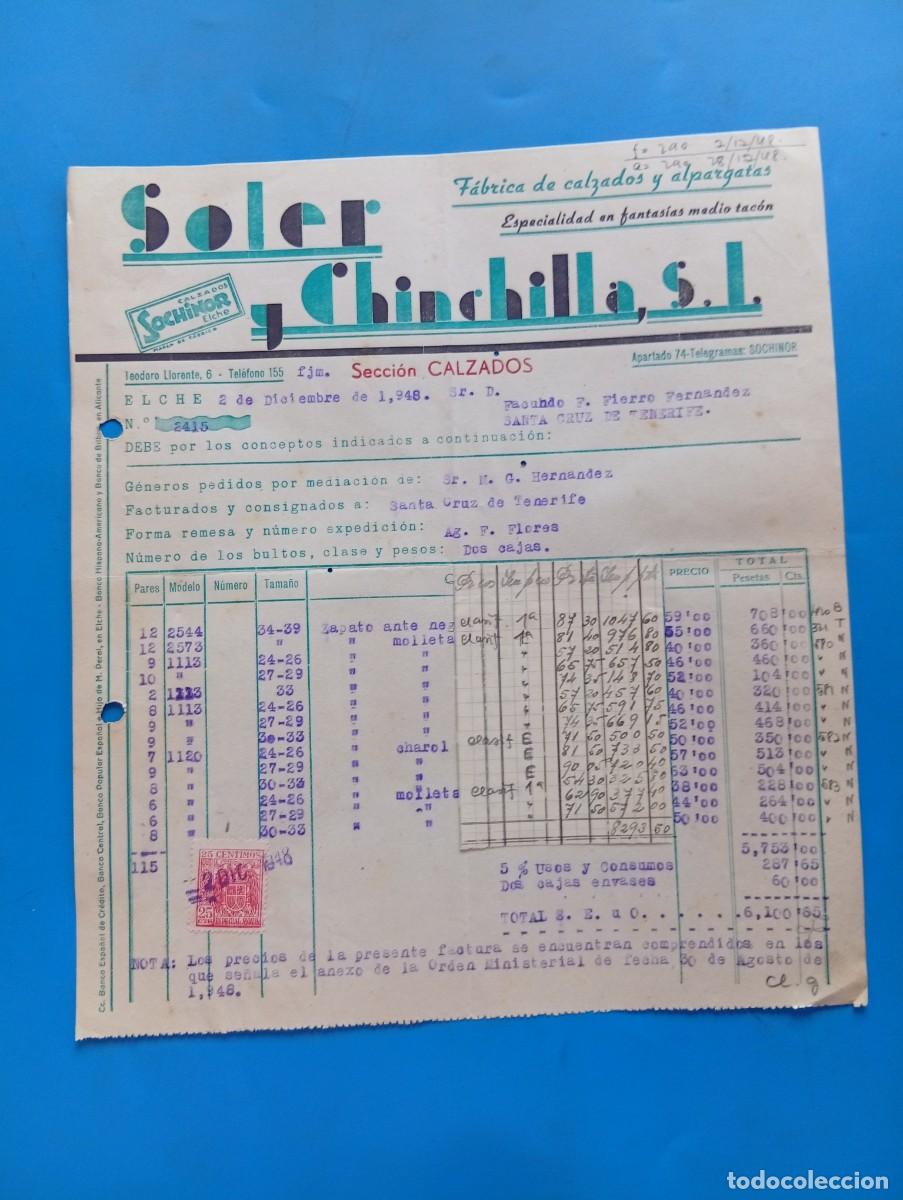 2/12/48.
28/12/48.
Soler
y Chinchilla, S.L.
Fábrica de calzados y alpargatas
Especialidad en fantasías medio tacón
CALZADOS
SOCHINOR
Elche
MARCA DE FÁBRICA
Teodoro Llorente, 6 - Teléfono 155 fjm. Sección CALZADOS Apartado 74-Telegramas: SOCHINOR
ELCHE 2 de Diciembre de 1,948. Sr. D. Facundo F. Fierro Fernandez
N.º 2415 SANTA CRUZ DE TENERIFE.
DEBE por los conceptos indicados a continuación:
Géneros pedidos por mediación de: Sr. M. G. Hernandez
Facturados y consignados a: Santa Cruz de Tenerife
Forma remesa y número expedición: Ag. F. Flores
Número de los bultos, clase y pesos: Dos cajas.
Pares Modelo Número Tamaño PRECIO TOTAL
Pesetas Cts.
12 2544 34-39 Zapato ante neg clasif. 1ª 87 30 1047 60 59'00 708'00
12 2573 " " molleta clasif 1ª 81 40 976 80 55'00 660'00
9 1113 24-26 " " " 57 20 514 80 40'00 360'00
10 " 27-29 " " " 65 75 657 50 46'00 460'00
2 1113 33 " " " 74 35 148 70 52'00 104'00
8 1113 24-26 " " " 57 20 457 60 40'00 320'00
9 " 27-29 " " " 65 75 591 75 46'00 414'00
9 " 30-33 " " " 74 35 669 15 52'00 468'00
7 1120 24-26 " charol clasif E 71 50 500 50 50'00 350'00
9 " 27-29 " " E 81 50 733 50 57'00 513'00
8 " 30-33 " " E 90 05 720 40 63'00 504'00
6 " 24-26 " molleta clasif 1ª 54 30 325 80 38'00 228'00
6 " 27-29 " " " 62 90 377 40 44'00 264'00
8 " 30-33 " " " 71 50 572 00 50'00 400'00
8293 50
115
5,753'00
5 % Usos y Consumos 287'65
Dos cajas envases 60'00
TOTAL S. E. u O. . . . . . . 6,100'65
25 CENTIMOS
2 DIC. 1948
25
NOTA: Los precios de la presente factura se encuentran comprendidos en los
que señala el anexo de la Orden Ministerial de fecha 30 de Agosto de
1,948.
Cc. Banco Español de Crédito, Banco Central, Banco Popular Español e Hijo de M. Peral, en Elche - Banco Hispano-Americano y Banco de Bilbao, en Alicante
todocoleccion